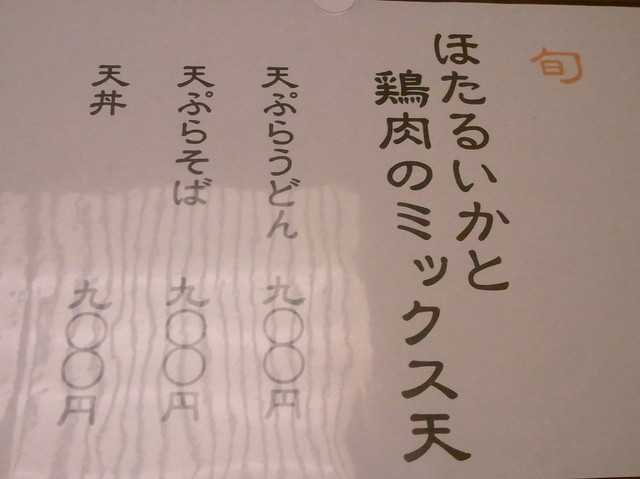 旬
ほたるいかと
鶏肉のミックス天
天ぷらうどん 九〇〇円
天ぷらそば 九〇〇円
天丼 九〇〇円